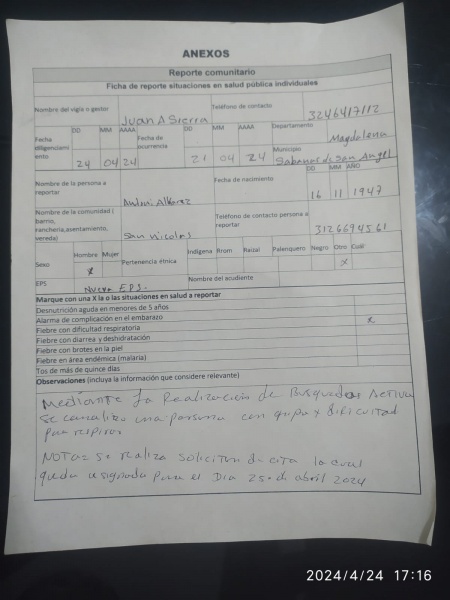 ANEXOS
Reporte comunitario
Ficha de reporte situaciones en salud pública individuales
Nombre del vigía o gestor Juan A Sierra Teléfono de contacto 3246417112
Fecha diligenciamiento DD MM AAAA 24 04 24 Fecha de ocurrencia DD MM AAAA 21 04 24 Departamento Magdalena
Municipio Sabanas de San Angel
Nombre de la persona a reportar Fecha de nacimiento DD MM AÑO 16 11 1947
Nombre de la comunidad ( barrio, rancheria,asentamiento, vereda) San nicolas Teléfono de contacto persona a reportar 3126694561
Sexo Hombre Mujer x Pertenencia étnica Indígena Rrom Raizal Palenquero Negro Otro Cuál x
EPS Nueva EPS. Nombre del acudiente
Marque con una X la o las situaciones en salud a reportar
Desnutrición aguda en menores de 5 años
Alarma de complicación en el embarazo
Fiebre con dificultad respiratoria x
Fiebre con diarrea y deshidratación
Fiebre con brotes en la piel
Fiebre en área endémica (malaria)
Tos de más de quince días
Observaciones (incluya la información que considere relevante)
Mediante la Realización de Busqueda Activa
se canalizo una persona con gripa y dificultad
par respirar
NOTA: se realiza solicitud di cita la cual
queda asignada para el Dia 25 di abril 2024
2024/4/24 17:16